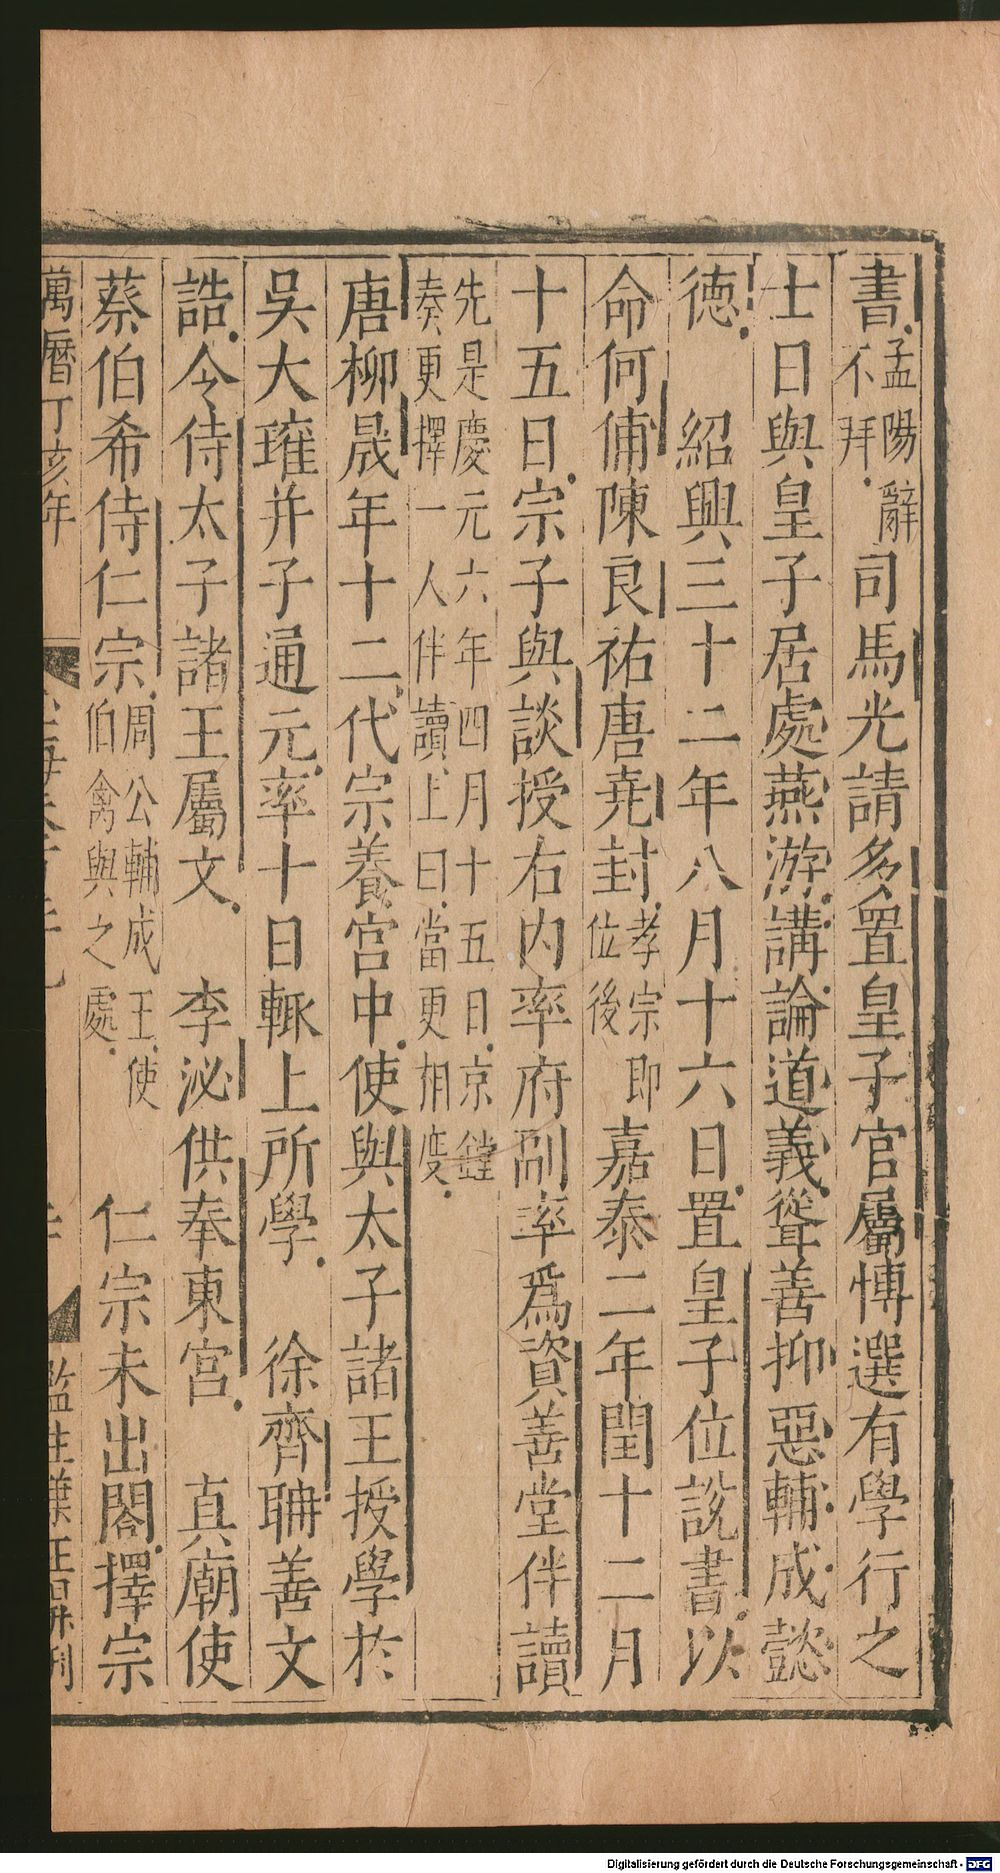 書孟陽辭不拜司馬光請多置皇子官屬博選有學行之
士日與皇子居處燕游講論道義聳善抑惡輔成懿
德 紹興三十二年八月十六日置皇子位說書以
命何俌陳良祐唐堯封孝宗即位後 嘉泰二年閏十二月
十五日宗子與談授右內率府副率爲資善堂伴讀
先是慶元六年四月十五日京鏜奏更擇一人伴讀上曰當更相度
唐柳晟年十二代宗養宮中使與太子諸王授學於
吳大瓘并子通元率十日輒上所學 徐齊聃善文
誥令侍太子諸王屬文 李泌供奉東宮 真廟使
蔡伯希侍仁宗周公輔成王使伯禽與之處 仁宗未出閤擇宗
萬曆丁亥年
監生葉正昇刊
Digitalisierung gefördert durch die Deutsche Forschungsgemeinschaft - DFG